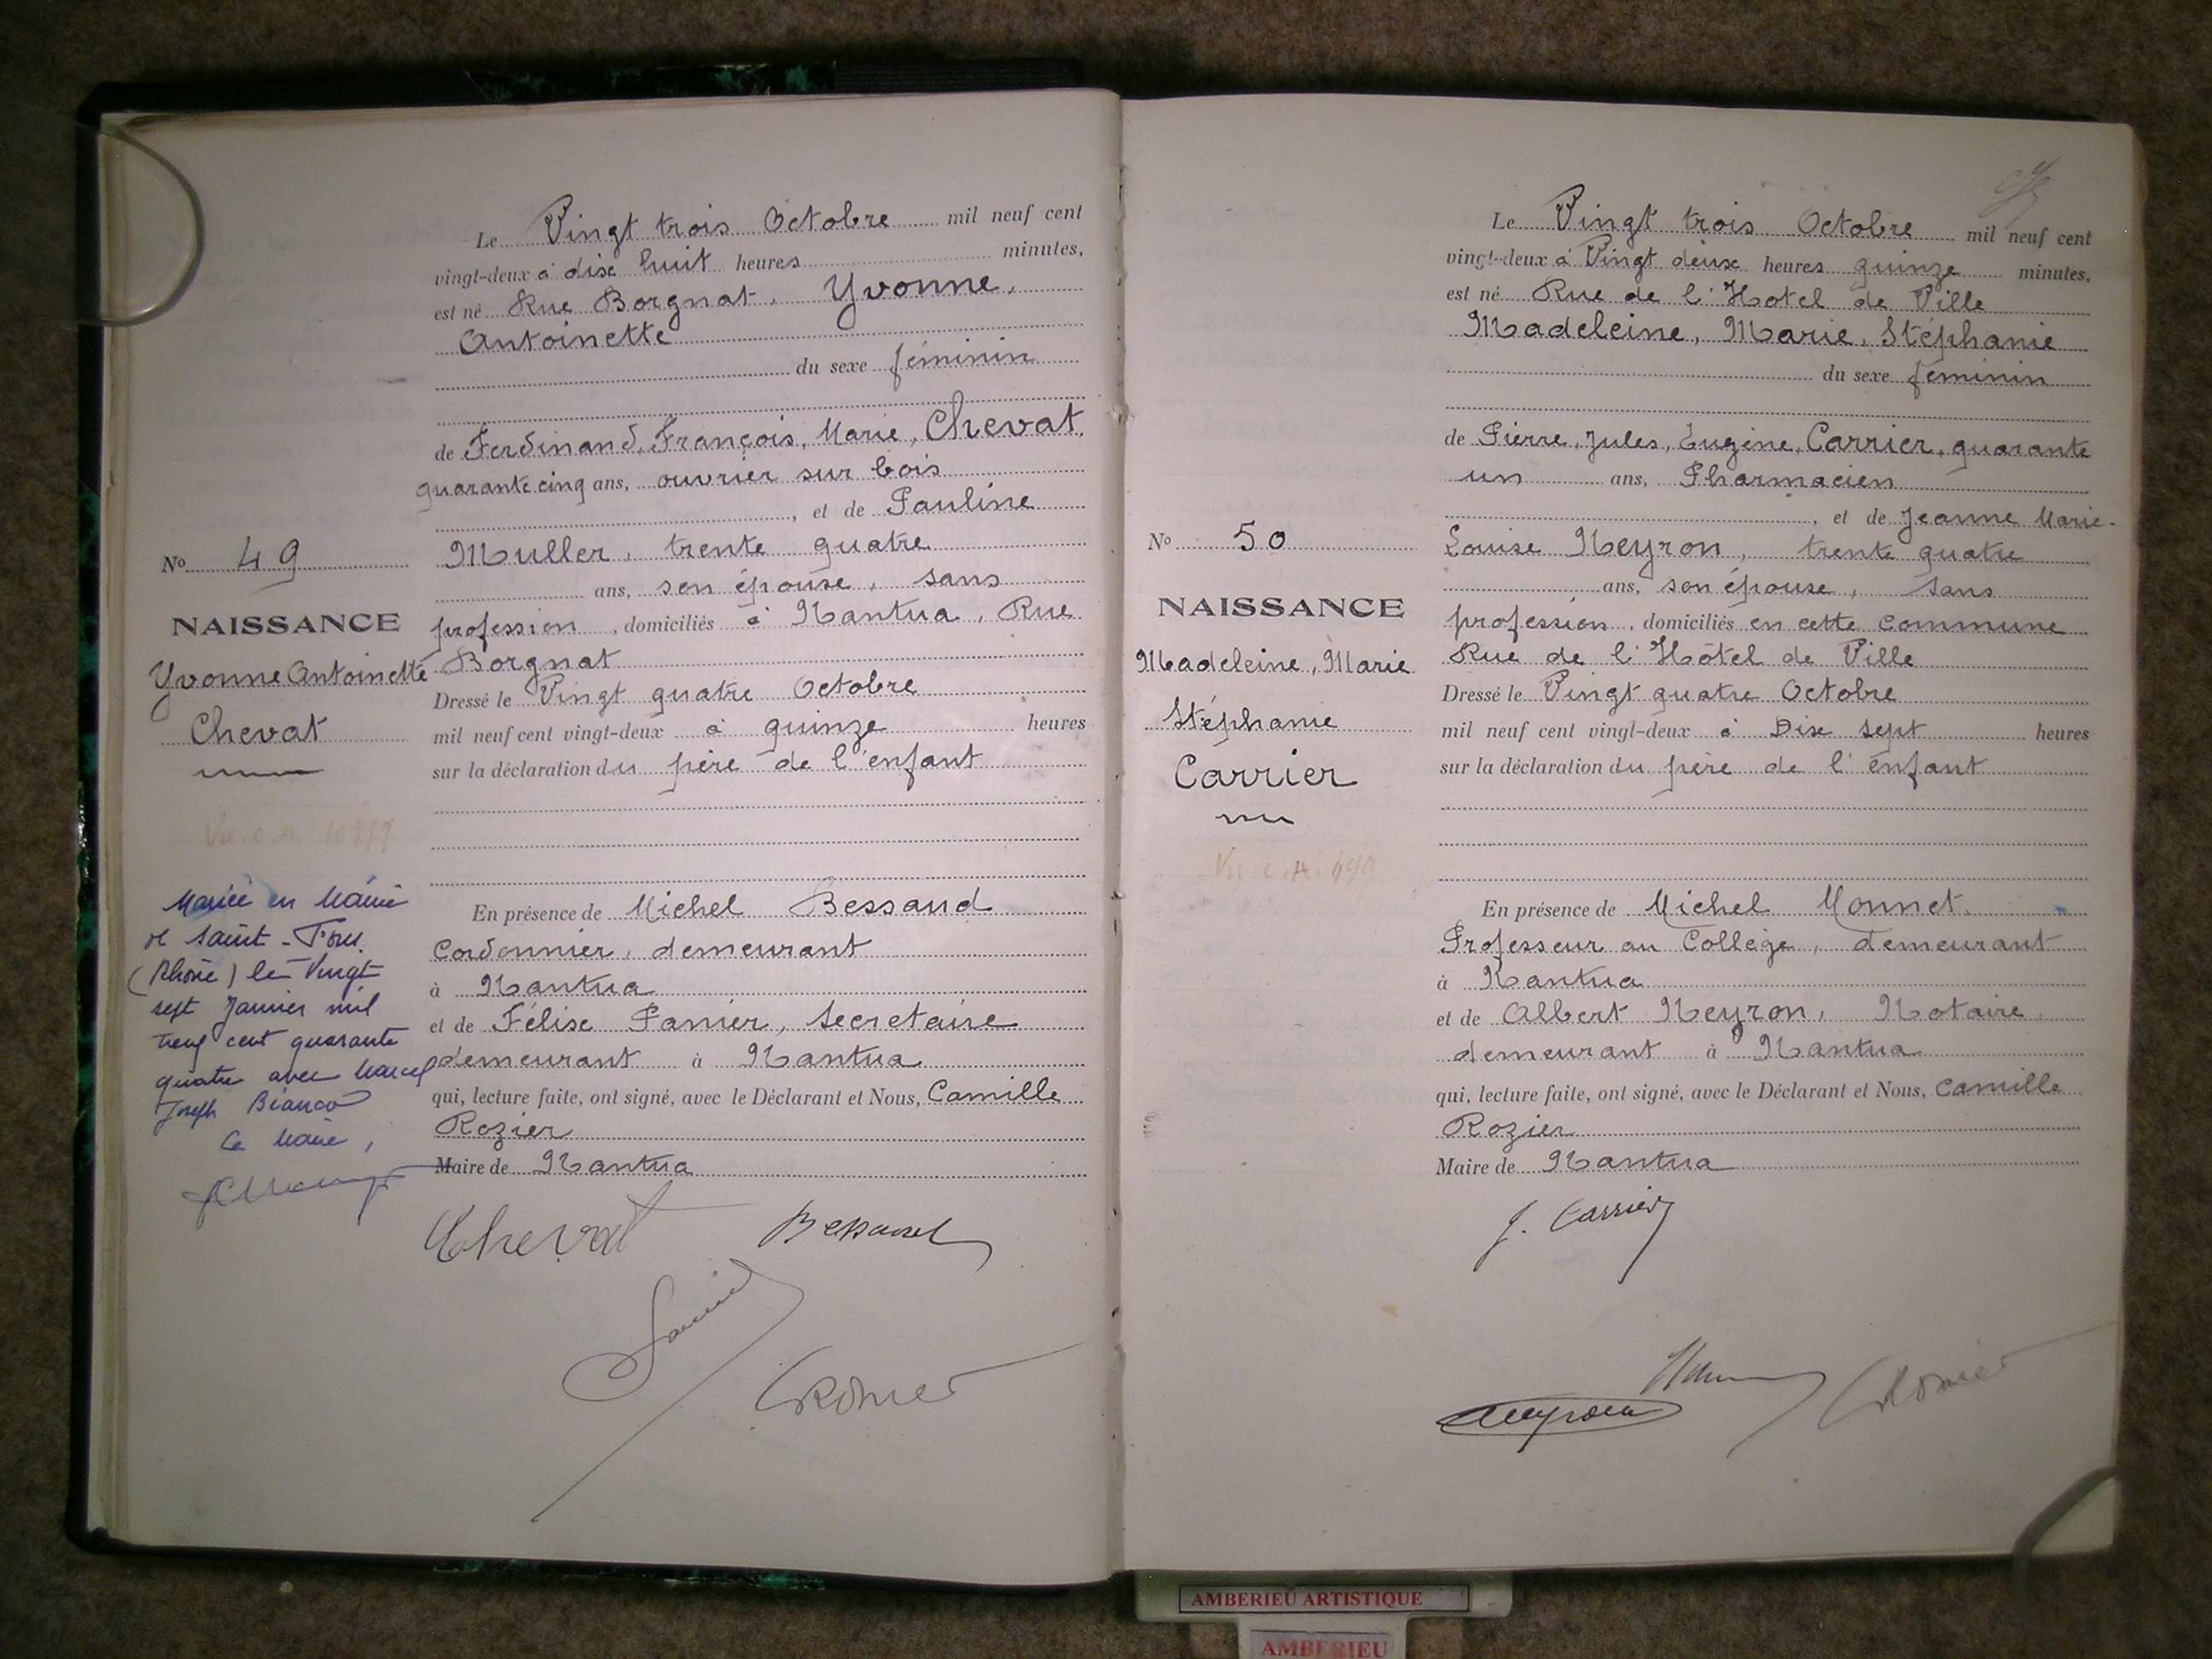 Le Vingt trois Octobre mil neuf cent
vingt-deux à dix huit heures minutes,
est né Rue Borgnat, Yvonne,
Antoinette
du sexe féminin
de Ferdinand, François, Marie, Chevat,
quarante cinq ans, ouvrier sur bois
, et de Pauline
Muller, trente quatre
ans, son épouse, sans
profession, domiciliés à Nantua, Rue
Borgnat
Dressé le Vingt quatre Octobre
mil neuf cent vingt-deux à quinze heures
sur la déclaration du père de l'enfant
En présence de Michel Bessand
Cordonnier, demeurant
à Nantua
et de Félix Panier, Secrétaire
demeurant à Nantua
qui, lecture faite, ont signé, avec le Déclarant et Nous, Camille
Rozier
Maire de Nantua
Chevat Bessand
No 49
NAISSANCE
Yvonne Antoinette
Chevat
Vu. C.A. 10777
Mariée en Mairie
de Saint-Fons
(Rhône) le Vingt
sept Janvier mil
neuf cent quarante
quatre avec Marcel
Joseph Bianco
Le Maire,
Le Vingt trois Octobre mil neuf cent
vingt-deux à Vingt deux heures quinze minutes,
est né Rue de l'Hotel de Ville
Madeleine, Marie, Stéphanie
du sexe féminin
de Pierre, Jules, Eugène, Carrier, quarante
un ans, Pharmacien
, et de Jeanne Marie-
Louise Neyron, trente quatre
ans, son épouse, sans
profession, domiciliés en cette commune
Rue de l'Hôtel de Ville
Dressé le Vingt quatre Octobre
mil neuf cent vingt-deux à Dix sept heures
sur la déclaration du père de l'enfant
En présence de Michel Monnet,
Professeur au Collège, demeurant
à Nantua
et de Albert Neyron, Notaire
demeurant à Nantua
qui, lecture faite, ont signé, avec le Déclarant et Nous, Camille
Rozier
Maire de Nantua
J. Carrier
Neyron
No 50
NAISSANCE
Madeleine, Marie
Stéphanie
Carrier
AMBERIEU ARTISTIQUE
AMBERIEU